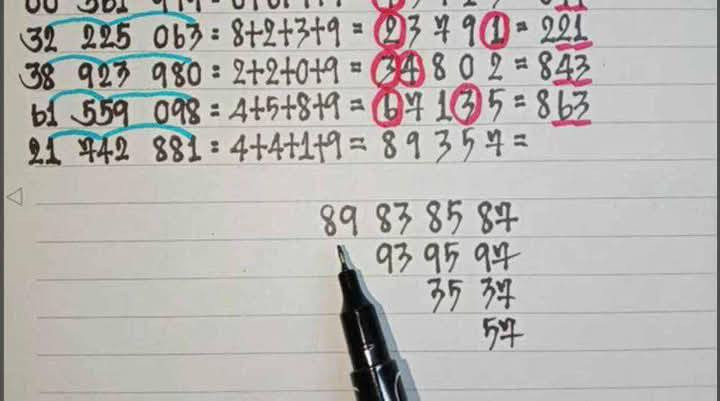 32 225 063 = 8+2+3+9 = 2 3 7 9 1 = 221
38 923 980 = 2+2+0+9 = 3 4 8 0 2 = 843
61 559 098 = 4+5+8+9 = 6 7 1 3 5 = 863
21 742 881 = 4+4+1+9 = 8 9 3 5 7 =
89 83 85 87
93 95 97
35 37
57